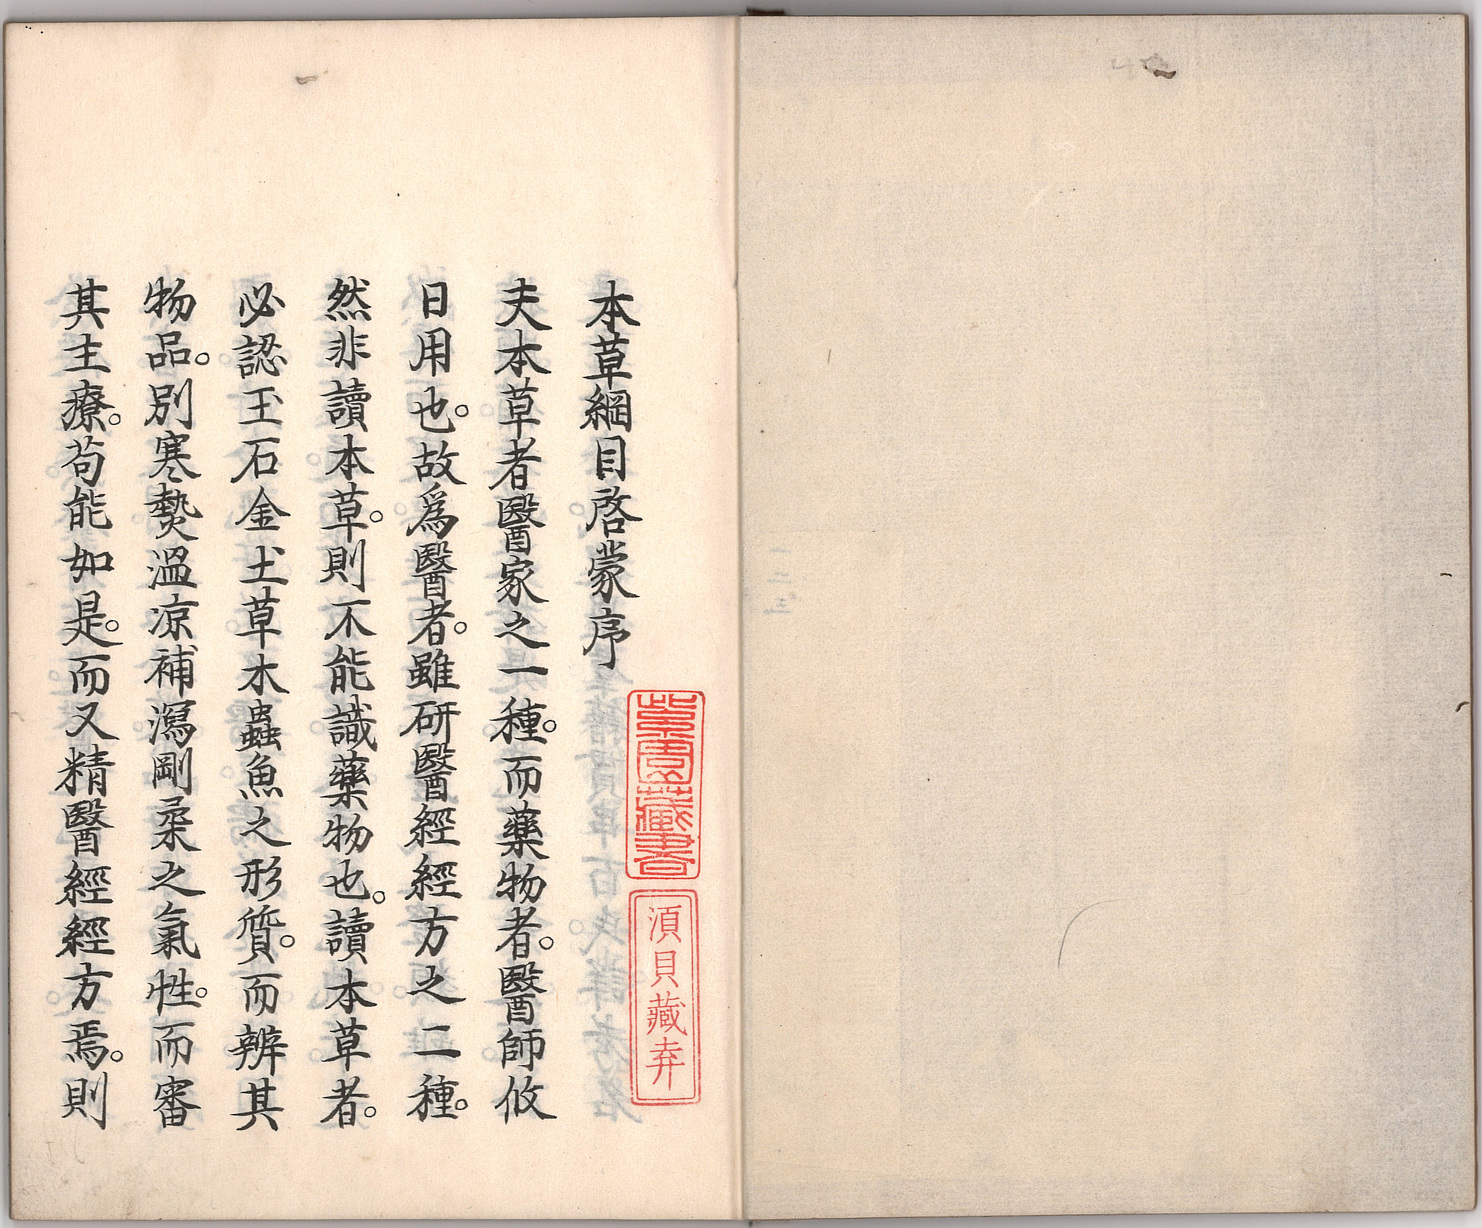 本草綱目啓蒙序
夫本草者醫家之一種。而藥物者。醫師攸
日用也。故爲醫者。雖研醫經經方之二種。
然非讀本草。則不能識藥物也。讀本草者。
必認玉石金土草木蟲魚之形質。而辨其
物品。別寒熱溫凉補瀉剛柔之氣性。而審
其主療。苟能如是。而又精醫經經方焉。則
藏書
湏貝藏弆